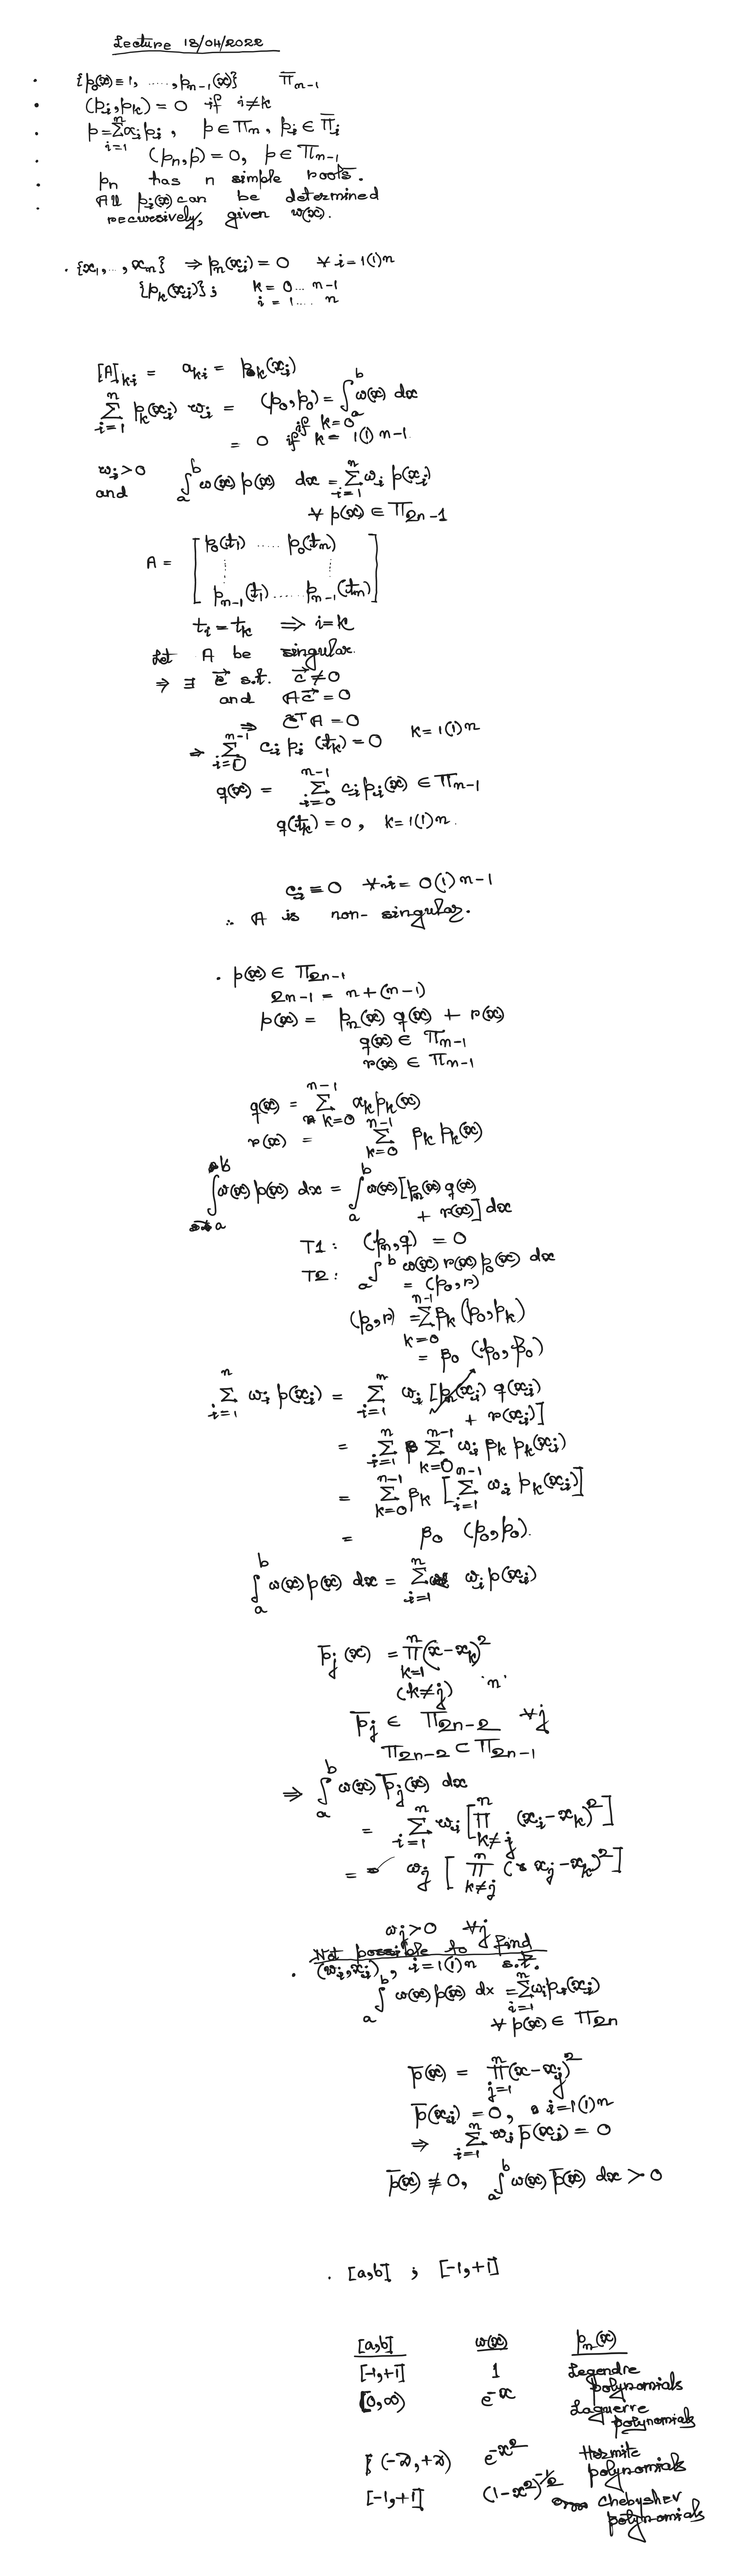 Lecture 18/04/2022
. {p₀(x)≡1, ....., pₙ₋₁(x)} Π̄ₙ₋₁
. (pᵢ, pₖ) = 0 if i≠k
. p = Σᵢ₌₁ⁿ αᵢpᵢ, p ∈ Πₙ, pᵢ ∈ Π̄ᵢ
. (pₙ, p) = 0, p ∈ Πₙ₋₁
. pₙ has n simple roots.
. All pᵢ(x) can be determined
recursively, given ω(x).
. {x₁, .., xₙ} ⇒ pₙ(xᵢ) = 0 ∀ i = 1(1)n
{pₖ(xᵢ)}; k = 0... n-1
i = 1.... n
[A]ₖᵢ = aₖᵢ = pₖ(xᵢ)
Σᵢ₌₁ⁿ pₖ(xᵢ) wᵢ = (p₀, p₀) = ∫ₐᵇ ω(x) dx
if k=0
= 0 if k = 1(1) n-1
wᵢ > 0
and ∫ₐᵇ ω(x) p(x) dx = Σᵢ₌₁ⁿ wᵢ p(xᵢ)
∀ p(x) ∈ Π₂ₙ₋₁
A = [p₀(t₁) ..... p₀(tₙ)
⋮ ⋮
pₙ₋₁(t₁) ..... pₙ₋₁(tₙ)]
tᵢ = tₖ ⇒ i = k
Let A be singular.
⇒ ∃ c⃗ s.t. c⃗ ≠ 0
and Ac⃗ = 0
⇒ c⃗ᵀA = 0
⇒ Σᵢ₌₀ⁿ⁻¹ cᵢ pᵢ (tₖ) = 0 k = 1(1)n
q(x) = Σᵢ₌₀ⁿ⁻¹ cᵢ pᵢ(x) ∈ Πₙ₋₁
q(tₖ) = 0, k = 1(1)n.
cᵢ = 0 ∀ i = 0(1) n-1
∴ A is non-singular.
. p(x) ∈ Π₂ₙ₋₁
2n-1 = n + (n-1)
p(x) = pₙ(x) q(x) + r(x)
q(x) ∈ Πₙ₋₁
r(x) ∈ Πₙ₋₁
q(x) = Σₖ₌₀ⁿ⁻¹ αₖ pₖ(x)
r(x) = Σₖ₌₀ⁿ⁻¹ βₖ pₖ(x)
∫ₐᵇ ω(x) p(x) dx = ∫ₐᵇ ω(x) [pₙ(x) q(x)
+ r(x)] dx
T1: (pₙ, q) = 0
T2: ∫ₐᵇ ω(x) r(x) p₀(x) dx
= (p₀, r)
(p₀, r) = Σₖ₌₀ⁿ⁻¹ βₖ (p₀, pₖ)
= β₀ (p₀, p₀)
Σᵢ₌₁ⁿ wᵢ p(xᵢ) = Σᵢ₌₁ⁿ wᵢ [pₙ(xᵢ) q(xᵢ)
+ r(xᵢ)]
= Σᵢ₌₁ⁿ Σₖ₌₀ⁿ⁻¹ wᵢ βₖ pₖ(xᵢ)
= Σₖ₌₀ⁿ⁻¹ βₖ [Σᵢ₌₁ⁿ⁻¹ wᵢ pₖ(xᵢ)]
= β₀ (p₀, p₀).
∫ₐᵇ ω(x) p(x) dx = Σᵢ₌₁ⁿ wᵢ p(xᵢ)
p̄ⱼ(x) = ∏ₖ₌₁ⁿ (x - xₖ)²
(k≠j) 'n'
p̄ⱼ ∈ Π₂ₙ₋₂ ∀ j
Π₂ₙ₋₂ ⊂ Π₂ₙ₋₁
⇒ ∫ₐᵇ ω(x) p̄ⱼ(x) dx
= Σᵢ₌₁ⁿ wᵢ [∏ⁿ k≠j (xᵢ - xₖ)²]
= wⱼ [∏ⁿ k≠j (xⱼ - xₖ)²]
wⱼ > 0 ∀ j
. Not possible to find
(wᵢ, xᵢ), i = 1(1)n s.t.
∫ₐᵇ ω(x) p(x) dx = Σᵢ₌₁ⁿ wᵢ pᵢ(xᵢ)
∀ p(x) ∈ Π₂ₙ
p̄(x) = ∏ⱼ₌₁ⁿ (x - xⱼ)²
p̄(xᵢ) = 0, i = 1(1)n
⇒ Σᵢ₌₁ⁿ wᵢ p̄(xᵢ) = 0
p̄(x) ≢ 0, ∫ₐᵇ ω(x) p̄(x) dx > 0
. [a,b] ; [-1,+1]
[a,b] ω(x) pₙ(x)
[-1,+1] 1 Legendre
polynomials
[0,∞) e⁻ˣ Laguerre
polynomials
(-∞,+∞) e^(-x²) Hermite
polynomials
[-1,+1] (1-x²)^(-1/2) Chebyshev
polynomials